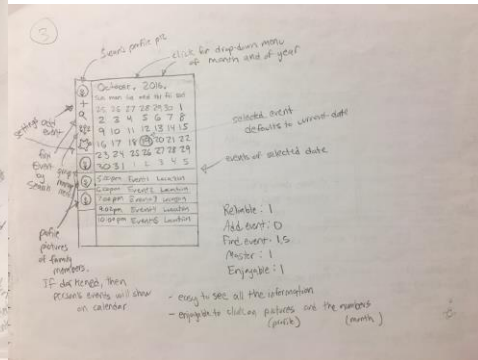 3
user's profile pic
click for drop-down menu
of month and of year
October. 2016.
sun mon tue wed thu fri sat
25 26 27 28 29 30 1
2 3 4 5 6 7 8
9 10 11 12 13 14 15
16 17 18 19 20 21 22
23 24 25 26 27 28 29
30 31 1 2 3 4 5
5:00pm Event1 Location
6:00pm Event2 Location
7:00pm Event3 Location
9:00pm Event4 Location
10:00pm Event5 Location
settings
add
event
find
Event
by
Search
group
selected event
defaults to current date
events of selected date
profile
pictures
of family
members.
If darkened, then
person's events will show
on calendar
Reliable: 1
Add event: 0
Find event: 1.5
Master: 1
Enjoyable: 1
- easy to see all the information
- enjoyable to click on pictures and the numbers
(profile) (month)